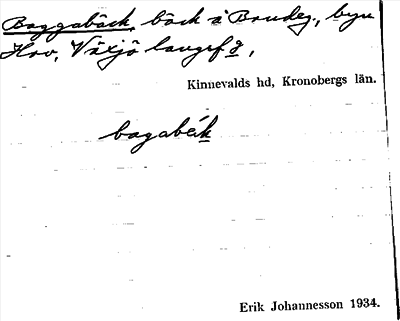 Baggabäck, bäck å Bondeg, byn
Hov, Växjö landsf ,
Kinnevalds hd, Kronobergs län.
bagabäk
Erik Johannesson 1934.